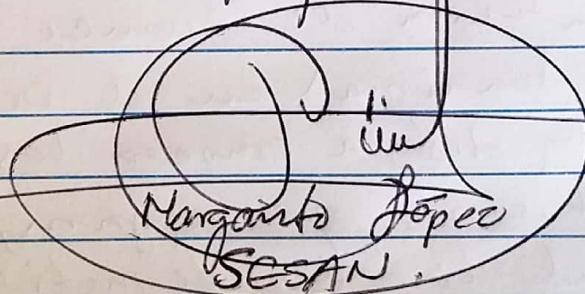 Margarito López
SESAN.